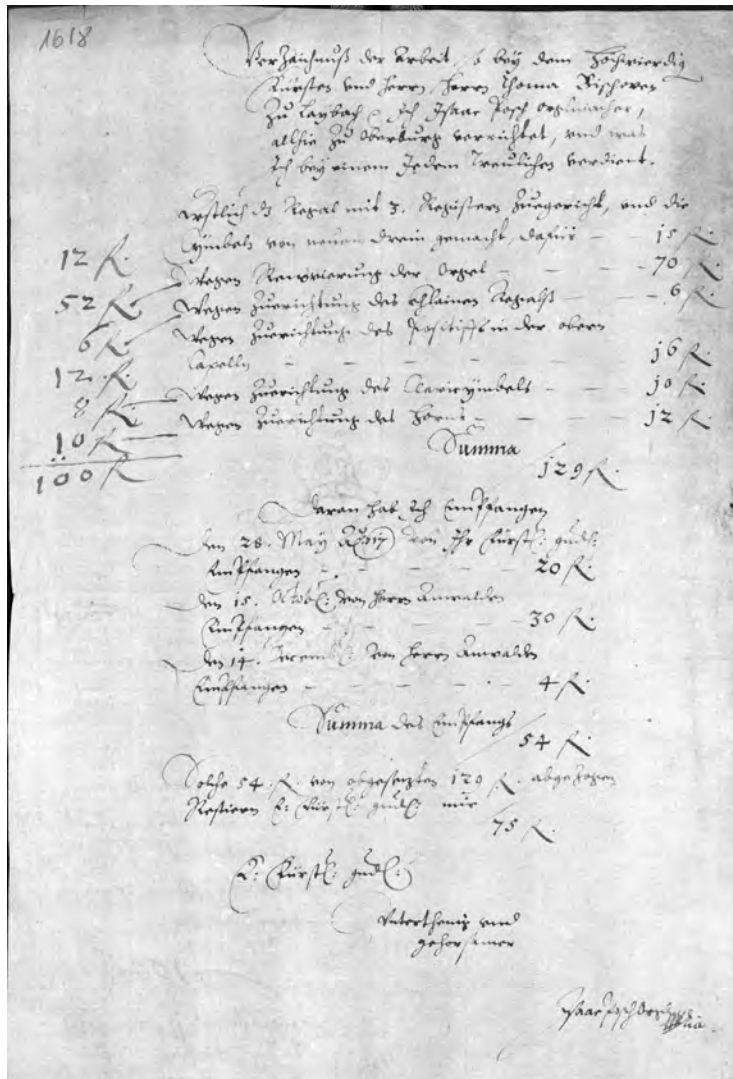 1618
Verzaichnuß der Arbeit, so bey dem Hochwierdig
Fürsten vnd Herrn, Herrn Thoma Bischoven
Zu Laybach ich Isaac Posch Orglmacher,
allhie zu Oberburg verrichtet, vnd was
Ich bey einem Jedem Treulichen verdient.
Erstlich dz Regal mit 3. Registern Zuegericht, vnd die
Cymbeln von neuen drein gemacht, dafür — — 15 fl.
12 fl.
Wegen Renovierung der Orgel — — — — 70 fl.
52 fl.
Wegen Zuerichtung des Khlainen Regalß — — — 6 fl.
6 fl.
Wegen Zuerichtung des Positiffs in der obern
Capelln — — — — — — 16 fl.
12 fl.
Wegen Zuerichtung des Clavicymbels — — — 10 fl.
8 fl.
Wegen Zuerichtung des — — — — 12 fl.
10 fl.
Summa
129 fl.
100 fl
Daran hab Ich Empfangen
Den 28. May von Ihr Fürstl: gndl:
Empfangen — — — — 20 fl.
Den 15. Octob: von Herrn Anwalden
Empfangen — — — — 30 fl.
Den 14. Decemb: von Herrn Anwalden
Empfangen — — — — 4 fl.
Summa des Empfangs
54 fl.
Solche 54. fl. von obgesetzten 129 fl. abgezogen
Restiern E: Fürstl: gndl: mir
75 fl.
E: Fürstl: gndl:
Vnterthenig vnd
gehorsamer
Isaac Posch